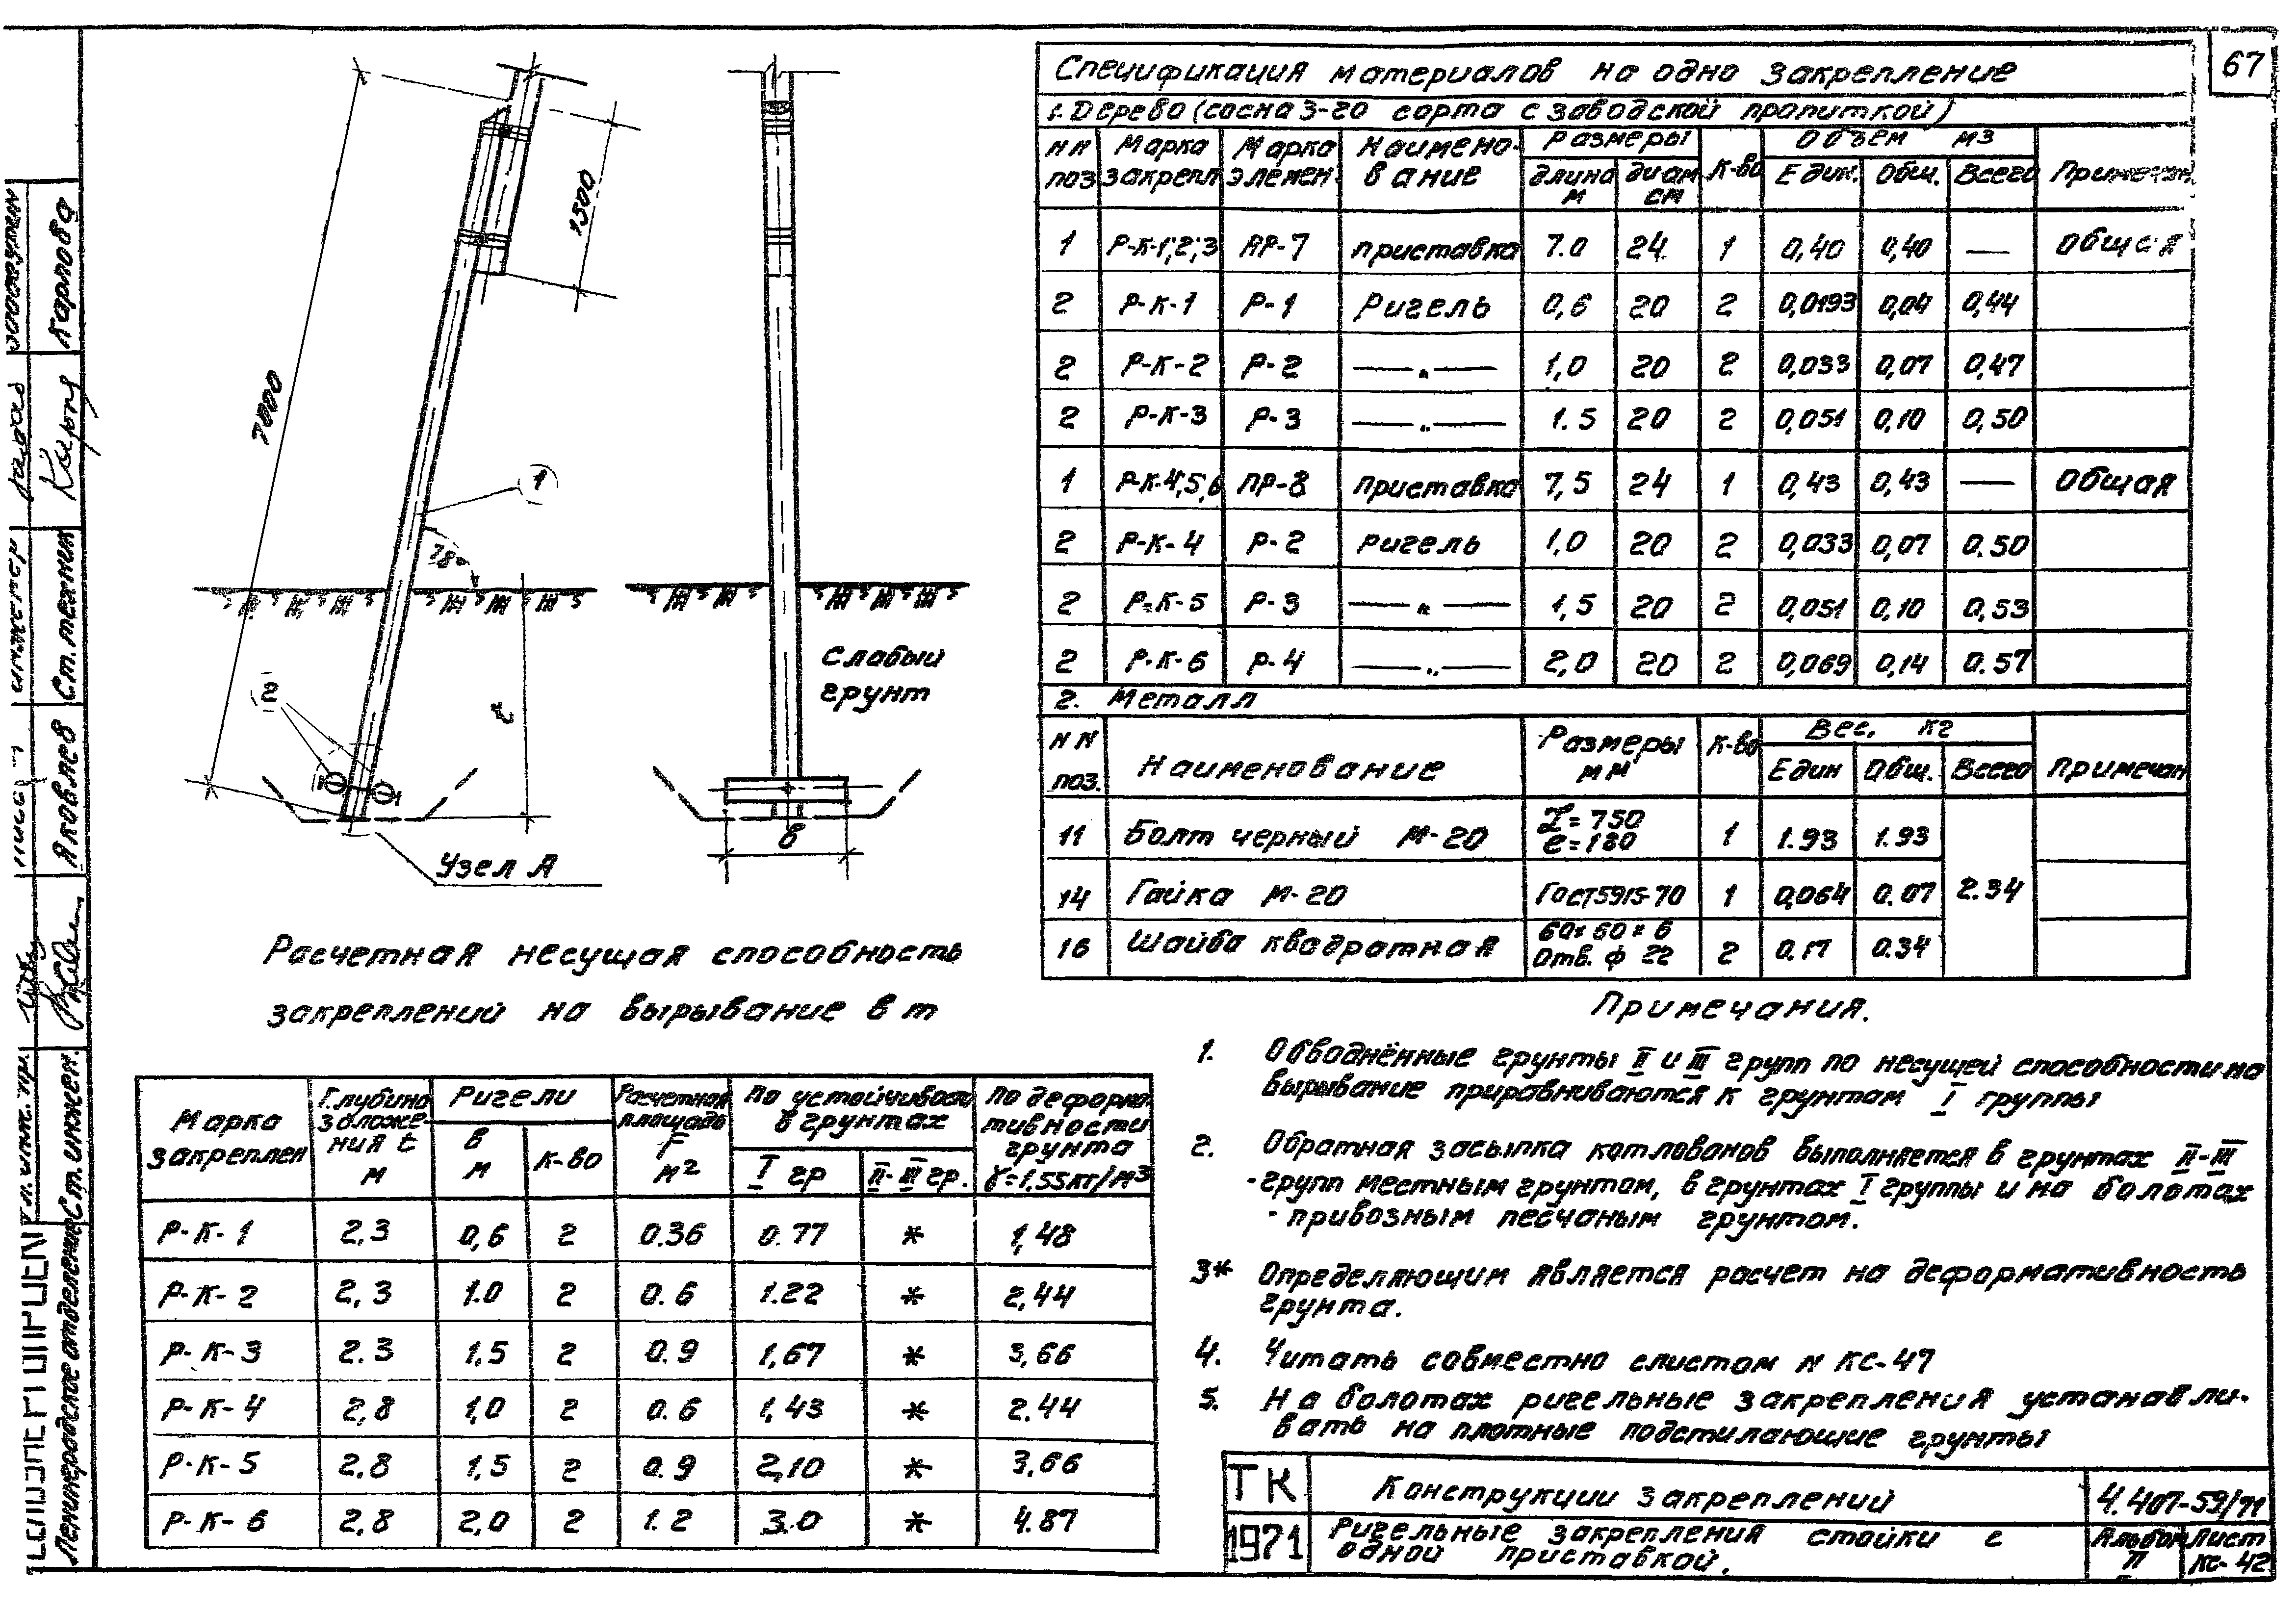 67
7000
1500
1
78°
2
t
Узел А
слабый
грунт
в
Спецификация материалов на одно закрепление
1. Дерево (сосна 3-го сорта с заводской пропиткой)
NN поз | Марка закрепл | Марка элемен. | Наимено-вание | Размеры | К-во | Объем м3 | Примечан
длина м | диам см | Един. | Общ. | Всего
1 Р-К-1;2;3 ПР-7 приставка 7.0 24 1 0,40 0,40 — Общая
2 Р-К-1 Р-1 Ригель 0,6 20 2 0,0193 0,04 0,44
2 Р-К-2 Р-2 —„— 1,0 20 2 0,033 0,07 0,47
2 Р-К-3 Р-3 —„— 1.5 20 2 0,051 0,10 0,50
1 Р-К-4,5,6 ПР-8 приставка 7,5 24 1 0,43 0,43 — Общая
2 Р-К-4 Р-2 ригель 1,0 20 2 0,033 0,07 0.50
2 Р-К-5 Р-3 —„— 1,5 20 2 0,051 0,10 0,53
2 Р-К-6 Р-4 —„— 2,0 20 2 0,069 0,14 0.57
2. Металл
NN поз. | Наименование | Размеры мм | К-во | Вес, кг | Примечан
Един | Общ. | Всего
11 Болт черный М-20 L=750 e=180 1 1.93 1.93
14 Гайка М-20 Гост 5915-70 1 0,064 0.07 2.34
16 Шайба квадратная 60×60×6 Отв. ф 22 2 0.17 0.34
Расчетная несущая способность
закреплений на вырывание в т
Марка закреплен | Глубина заложе-ния t м | Ригели | Расчетная площадь F м2 | по устойчивости в грунтах | по деформа-тивности грунта γ=1.55кг/м3
в м | к-во | I гр | II-III гр.
Р-К-1 2,3 0,6 2 0.36 0.77 * 1,48
Р-К-2 2,3 1.0 2 0.6 1.22 * 2,44
Р-К-3 2.3 1,5 2 0.9 1,67 * 3,66
Р-К-4 2,8 1,0 2 0.6 1,43 * 2.44
Р-К-5 2,8 1,5 2 0.9 2,10 * 3,66
Р-К-6 2,8 2,0 2 1.2 3.0 * 4.87
Примечания.
1. Обводнённые грунты II и III групп по несущей способности на
вырывание приравниваются к грунтам I группы
2. Обратная засыпка котлованов выполняется в грунтах II-III
-групп местным грунтом, в грунтах I группы и на болотах
- привозным песчаным грунтом.
3* Определяющим является расчет на деформативность
грунта.
4. Читать совместно с листом N КС-47
5. На болотах ригельные закрепления устанавли-
вать на плотные подстилающие грунты
ТК
1971
Конструкции закреплений
Ригельные закрепления стойки с
одной приставкой.
4.407-59/71
Альбом II
Лист КС-42
Ленинградское отделение
Гл. инж. пр.
Ст. инжен.
Яковлев
инженер
Ст. техник
Карпова